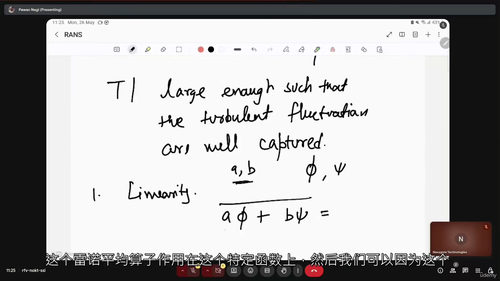 Pawan Negi (Presenting)
11:23 Mon, 26 May
RANS
T | large enough such that
the turbulent fluctuations
are well captured.
a, b ϕ, ψ
1. Linearity.
aϕ + bψ =
这个雷诺平均算子作用在这个特定函数上，然后我们可以因为这个
11:25 rfv-nokt-ssi